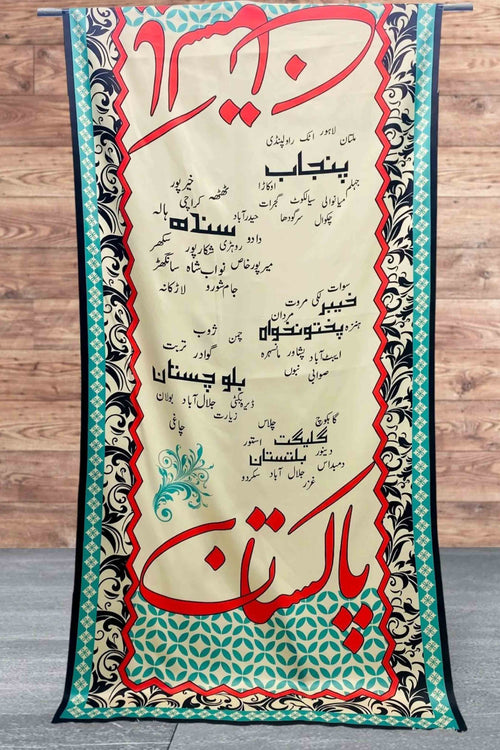 ملتان لاہور اٹک راولپنڈی
پنجاب
جہلم میانوالی سیالکوٹ گجرات اوکاڑا
چکوال سرگودھا
خیرپور
ٹھٹھہ کراچی
حیدرآباد سندھ ہالہ
دادو روہڑی شکارپور سکھر
میرپورخاص نواب شاہ سانگھڑ
جام شورو لاڑکانہ
سوات
خیبر لکی مروت
مردان
ہنزہ پختونخواہ
ایبٹ آباد پشاور مانسہرہ
صوابی بنوں
چمن ژوب
گوادر تربت
بلوچستان
ڈیرہ بگٹی جلال آباد بولان
زیارت
چاغی
گاہکوچ چلاس
گلیگت استور
دینور بلتستان
دمبداس جلال آباد سکردو
غزر
پاکستان